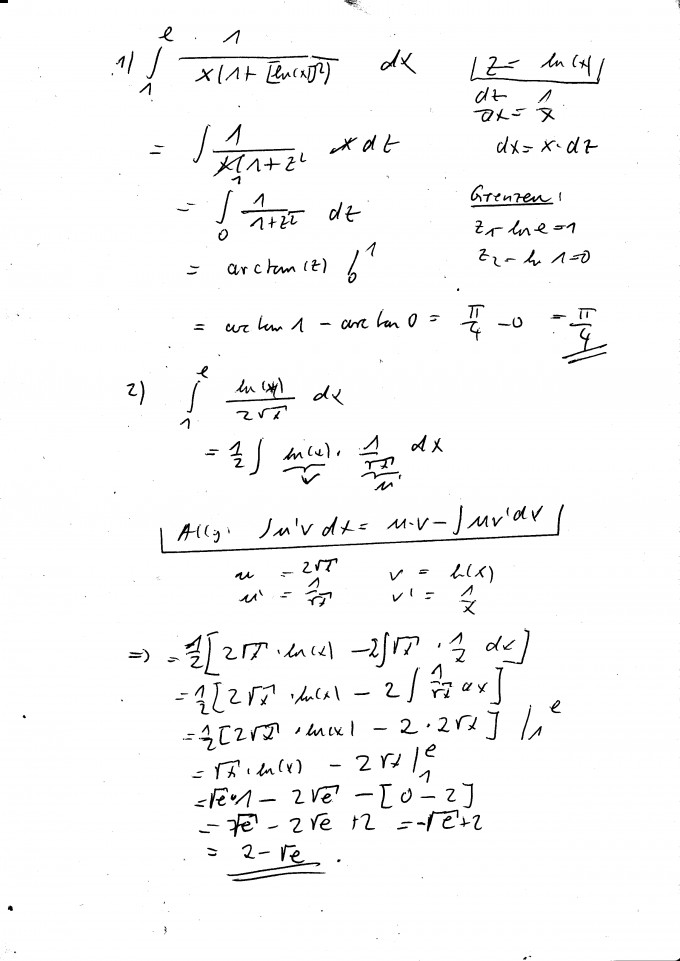 1) ∫₁ᵉ 1 / (x(1+[ln(x)]²)) dx   | z = ln(x) |
dz/dx = 1/x
= ∫ 1 / (x(1+z² x dz   dx = x·dz
= ∫₀¹ 1/(1+z²) dz   Grenzen:
z₁ = ln e = 1
= arctan(z) |₀¹   z₂ = ln 1 = 0
= arctan 1 - arctan 0 = π/4 - 0 = π/4
2) ∫₁ᵉ ln(x)/(2√x) dx
= 1/2 ∫ ln(x) · 1/√x dx
v   u'
Allg: ∫u'v dx = u·v - ∫uv' dx
u = 2√x   v = ln(x)
u' = 1/√x   v' = 1/x
=> = 1/2 [2√x · ln(x) - 2∫√x · 1/x dx]
= 1/2 [2√x · ln(x) - 2 ∫ 1/√x dx]
= 1/2 [2√x · ln(x) - 2·2√x] |₁ᵉ
= √x · ln(x) - 2√x |₁ᵉ
= √e·1 - 2√e - [0-2]
= √e - 2√e + 2 = -√e + 2
= 2 - √e .